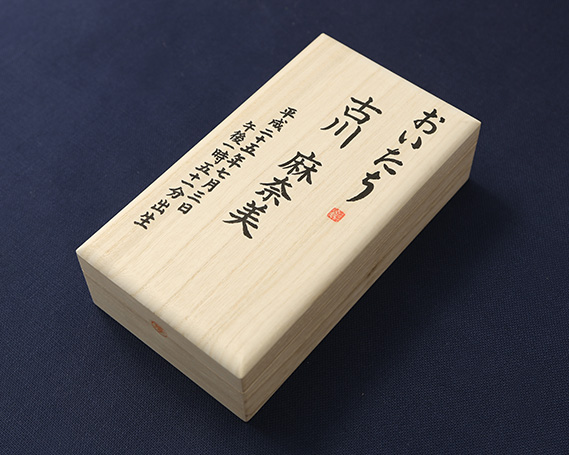 おいたち
古川 麻奈美
平成二十五年七月三日
午後一時五十一分出生